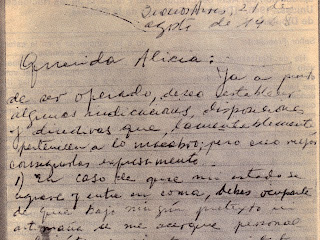 Buenos Aires, 21 de
agosto de 19
Querida Alicia:
Ya a punto
de ser operado, deseo establecer
algunas indicaciones, disposiciones
y directivas que, lamentablemente
pertenecen a lo macabro; pero creo mejor
consignarlas expresamente.
1) En caso de que mi estado se
agrave y entre en coma, debes ocuparte
de que bajo ningún pretexto ni
artimaña se me acerque personal